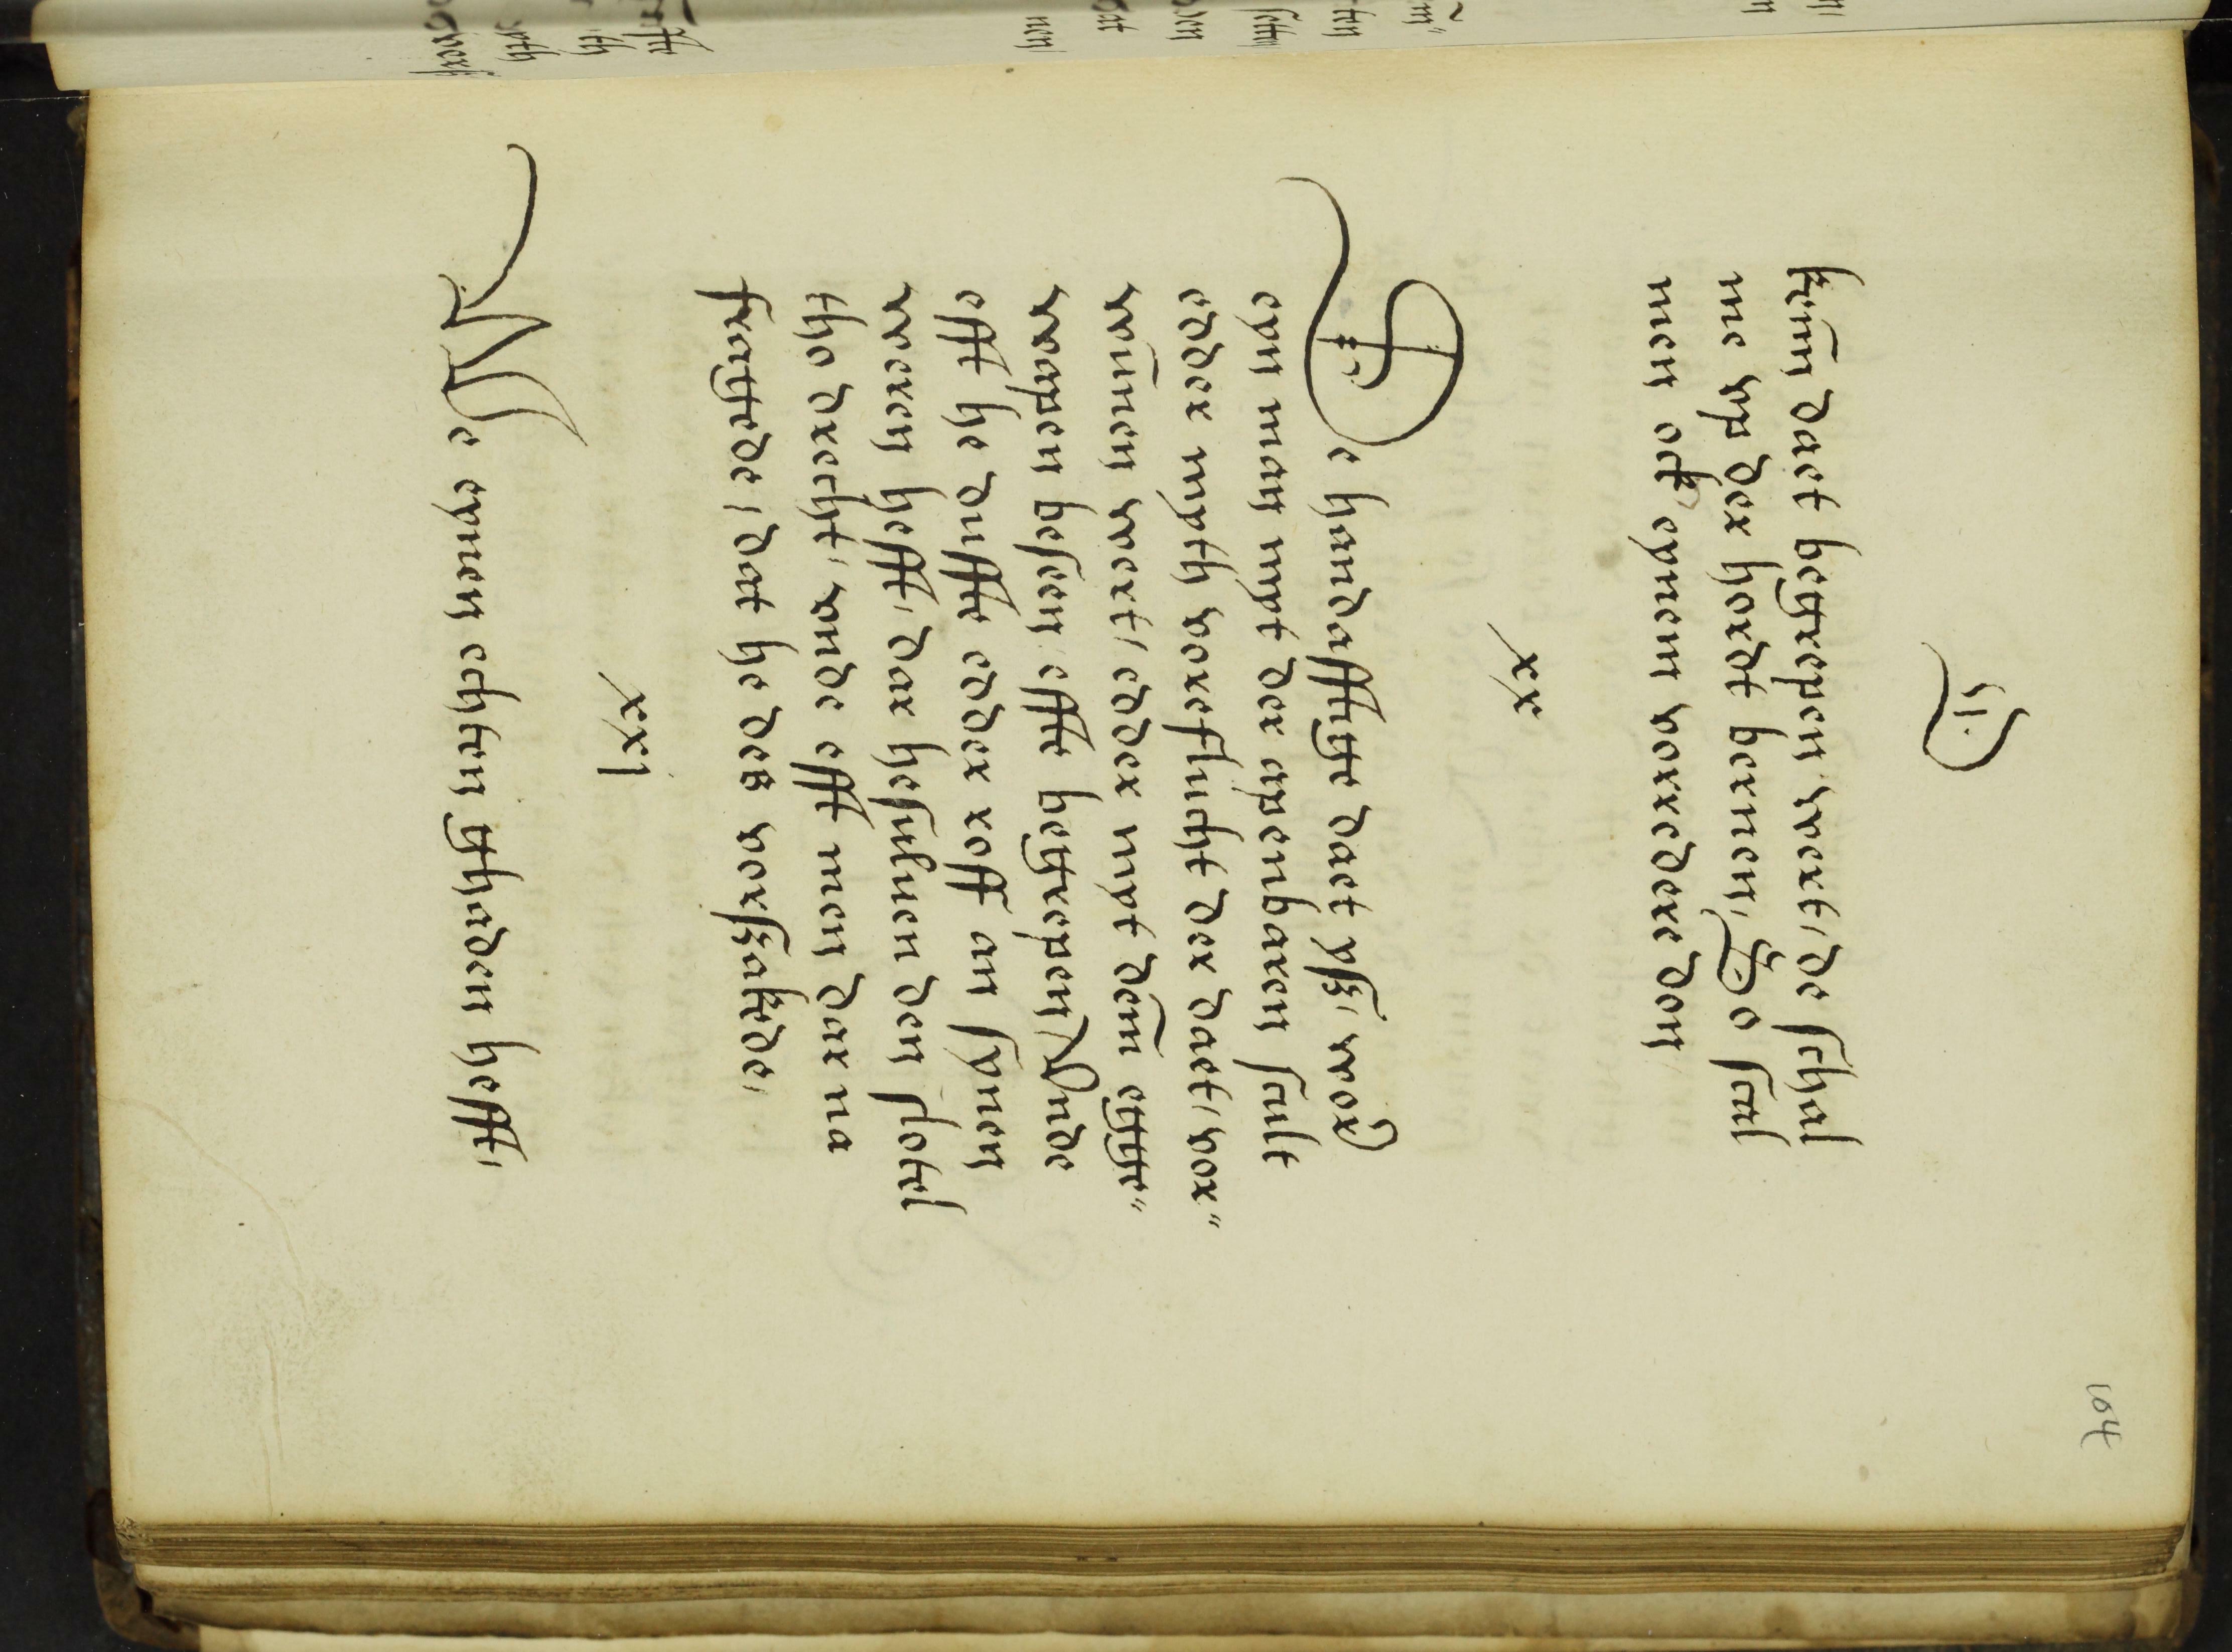 104
daet betreghen wert, de schal
me vp der hordt bernen, So schal
men ock eynen vorreder don
xx
De handaffte daet, ys, woer
eyn man myt der apenbaren schult
edder myth der daet, vor=
wunnen wert, edder myt dem
wapen beseen, effte betreghen, Unde
efft he duffte edder roff an synen
weren hefft, dar he sulven den slotel
tho drecht, vnde efft men dar na
trachtede, dat he des vorsakede,
xxi
We eynen echten hefft,